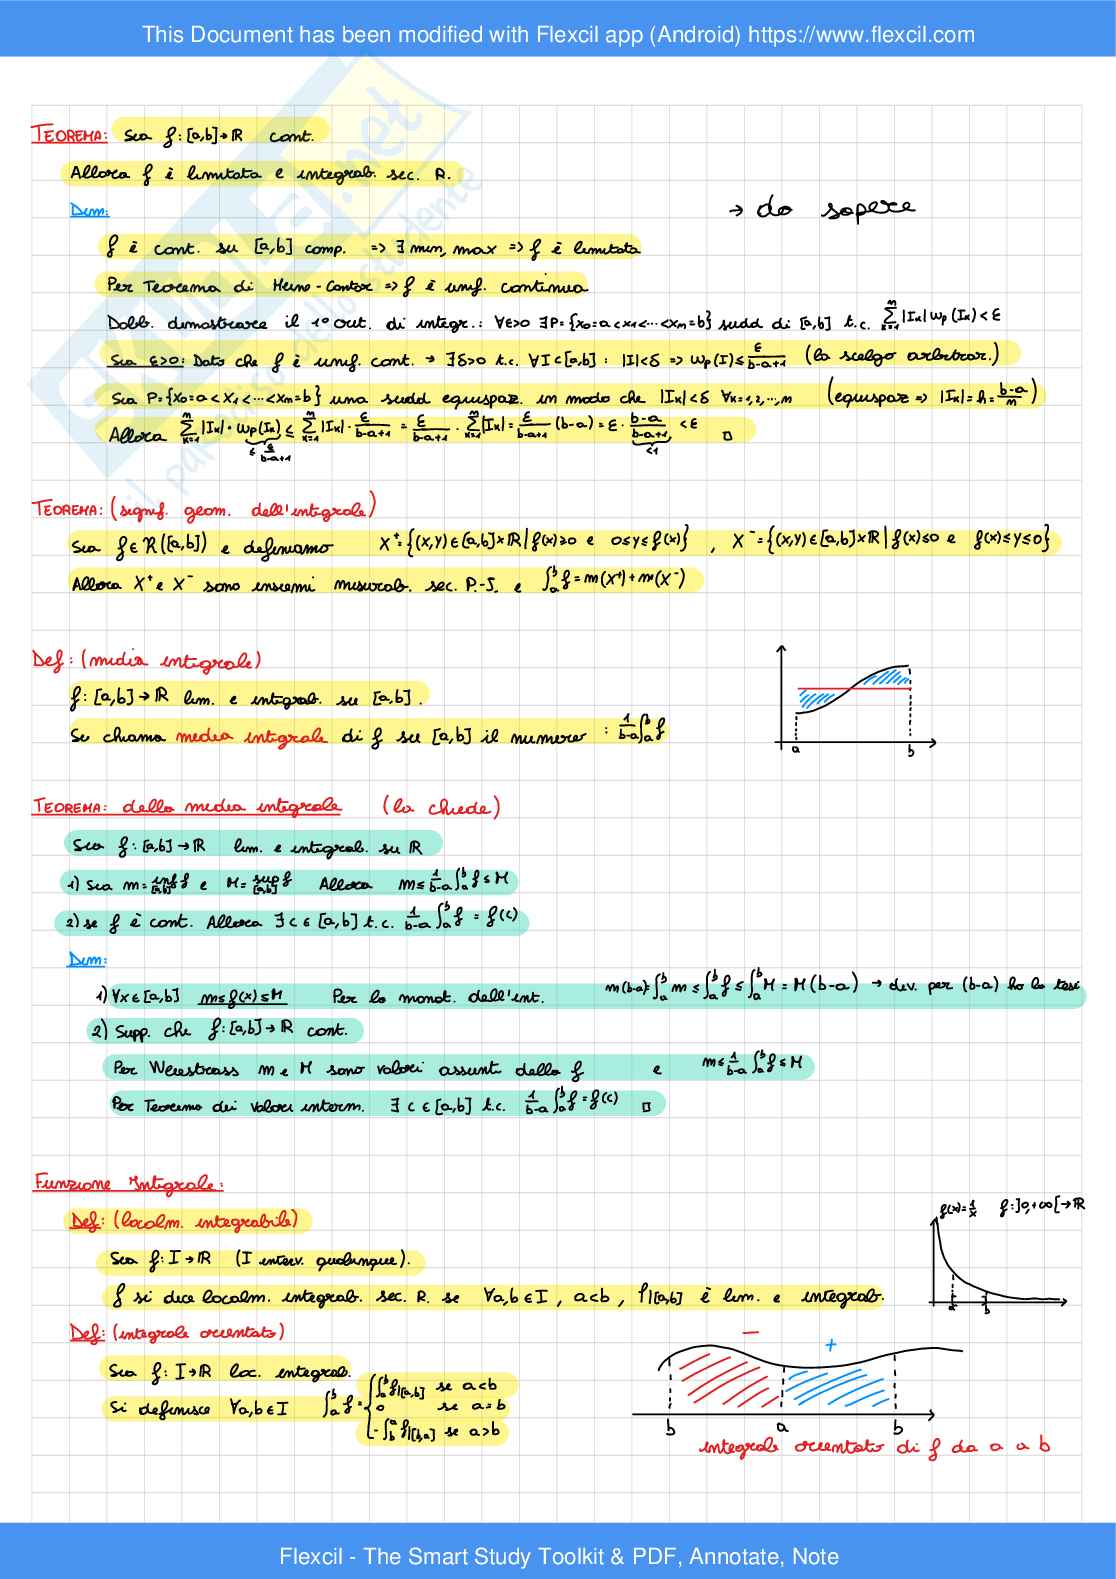 This Document has been modified with Flexcil app (Android) https://www.flexcil.com
TEOREMA: Sia f: [a,b]→ℝ cont.
Allora f è limitata e integrab. sec. R.
Dim:
→ da sapere
f è cont. su [a,b] comp. => ∃ min, max => f è limitata
Per Teorema di Heine-Cantor => f è unif. continua
Dobb. dimostrare il 1° crit. di integr.: ∀ε>0 ∃P={x₀=a<x₁<...<xₘ=b} sudd di [a,b] t.c. Σₖ₌₁ᵐ |Iₖ| wp(Iₖ) < ε
Sia ε>0: Dato che f è unif. cont. → ∃δ>0 t.c. ∀I⊂[a,b]: |I|<δ => wp(I) ≤ ε/(b-a+1) (la scelgo arbitrar.)
Sia P={x₀=a<x₁<...<xₘ=b} una sudd equispaz. in modo che |Iₖ|<δ ∀k=1,2,...,m (equispaz => |Iₖ|=h=(b-a)/m)
Allora Σₖ₌₁ᵐ |Iₖ|·wp(Iₖ) ≤ Σₖ₌₁ᵐ |Iₖ|·ε/(b-a+1) = ε/(b-a+1) · Σₖ₌₁ᵐ |Iₖ| = ε/(b-a+1) (b-a) = ε·(b-a)/(b-a+1) < ε □
≤ ε/(b-a+1) <1
TEOREMA: (signif. geom. dell'integrale)
Sia f∈R([a,b]) e definiamo X⁺={(x,y)∈[a,b]×ℝ | f(x)≥0 e 0≤y≤f(x)}, X⁻={(x,y)∈[a,b]×ℝ | f(x)≤0 e f(x)≤y≤0}
Allora X⁺ e X⁻ sono insiemi misurab. sec. P.-J. e ∫ₐᵇ f = m(X⁺)+m(X⁻)
Def: (media integrale)
f: [a,b]→ℝ lim. e integrab. su [a,b].
Si chiama media integrale di f su [a,b] il numero: 1/(b-a) ∫ₐᵇ f
a b
TEOREMA: della media integrale (la chiede)
Sia f: [a,b]→ℝ lim. e integrab. su ℝ
1) Sia m= inf[a,b] f e M= sup[a,b] f Allora m ≤ 1/(b-a) ∫ₐᵇ f ≤ M
2) se f è cont. Allora ∃c∈[a,b] t.c. 1/(b-a) ∫ₐᵇ f = f(c)
Dim:
1) ∀x∈[a,b] m≤f(x)≤M Per la monot. dell'int. m(b-a)=∫ₐᵇ m ≤ ∫ₐᵇ f ≤ ∫ₐᵇ M = M(b-a) → div. per (b-a) ho la tesi
2) Supp. che f: [a,b]→ℝ cont.
Per Weiestrass m e M sono valori assunti dalla f e m ≤ 1/(b-a) ∫ₐᵇ f ≤ M
Per Teorema dei valori interm. ∃c∈[a,b] t.c. 1/(b-a) ∫ₐᵇ f = f(c) □
Funzione Integrale:
Def: (localm. integrabile)
f(x)=1/x f: ]0,+∞[→ℝ
Sia f: I→ℝ (I interv. qualunque).
f si dice localm. integrab. sec. R. se ∀a,b∈I, a<b, f|[a,b] è lim. e integrab.
a b
Def: (integrale orientato)
Sia f: I→ℝ loc. integrab.
Si definisce ∀a,b∈I ∫ₐᵇ f = { ∫ₐᵇ f|[a,b] se a<b
0 se a=b
-∫_bᵃ f|[b,a] se a>b
− +
b a b
integrale orientato di f da a a b
Flexcil - The Smart Study Toolkit & PDF, Annotate, Note